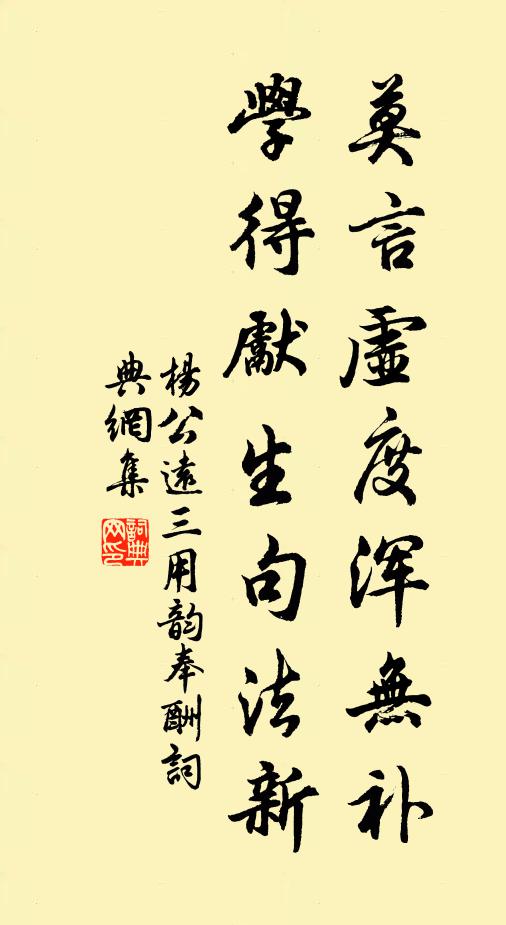 莫言虛度浑無补
學得獻生句法新
楊公遠三用韵奉酬詞
典網集
詞典网印